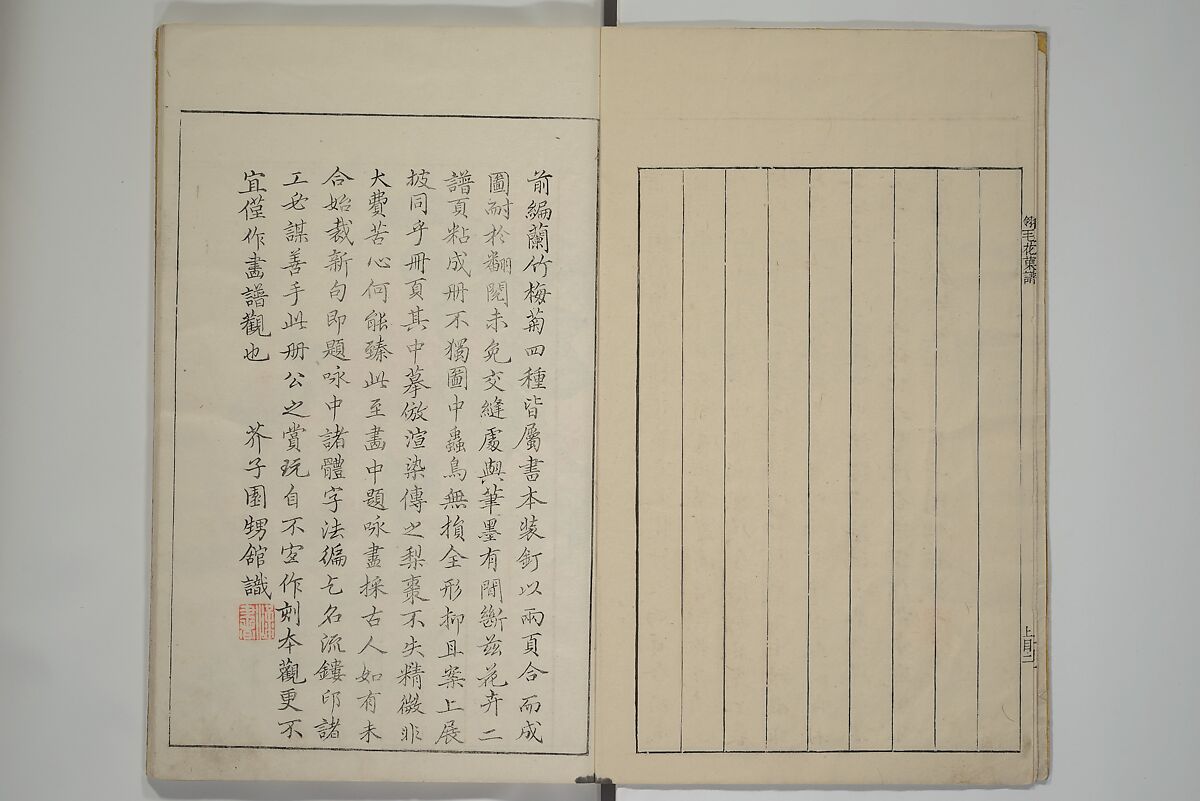 翎毛花蕚譜
上目二
前編蘭竹梅菊四種皆屬書本裝釘以兩頁合而成
圖耐於翻閱未免交縫處與筆墨有間斷茲花卉二
譜頁粘成册不獨圖中蟲鳥無損全形抑且案上展
披同乎冊頁其中摹倣渲染傳之梨棗不失精微非
大費苦心何能臻此至畫中題咏盡採古人如有未
合始裁新句即題咏中諸體字法徧乞名流鏤印諸
工必謀善手此册公之賞玩自不宜作刻本觀更不
宜僅作畫譜觀也　芥子園甥館識